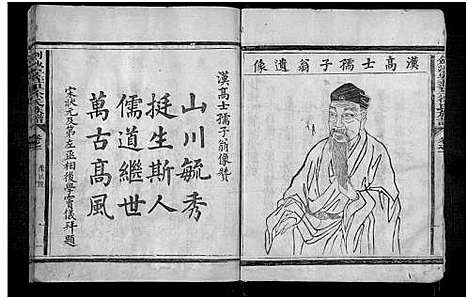 漢高士孺子翁遺像
漢高士孺子翁像贊
山川毓秀
挺生斯人
儒道繼世
萬古高風
宋狀元及第左丞相後學賓儀拜題